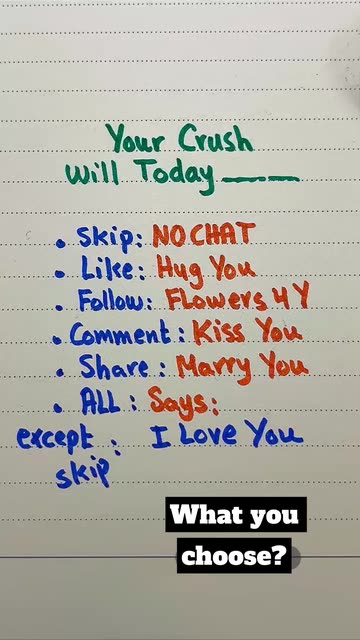 Your Crush
Will Today ____
• Skip: NO CHAT
• Like: Hug You
• Follow: Flowers 4 Y
• Comment: Kiss You
• Share: Marry You
• ALL: Says:
except: I Love You
skip
What you
choose?